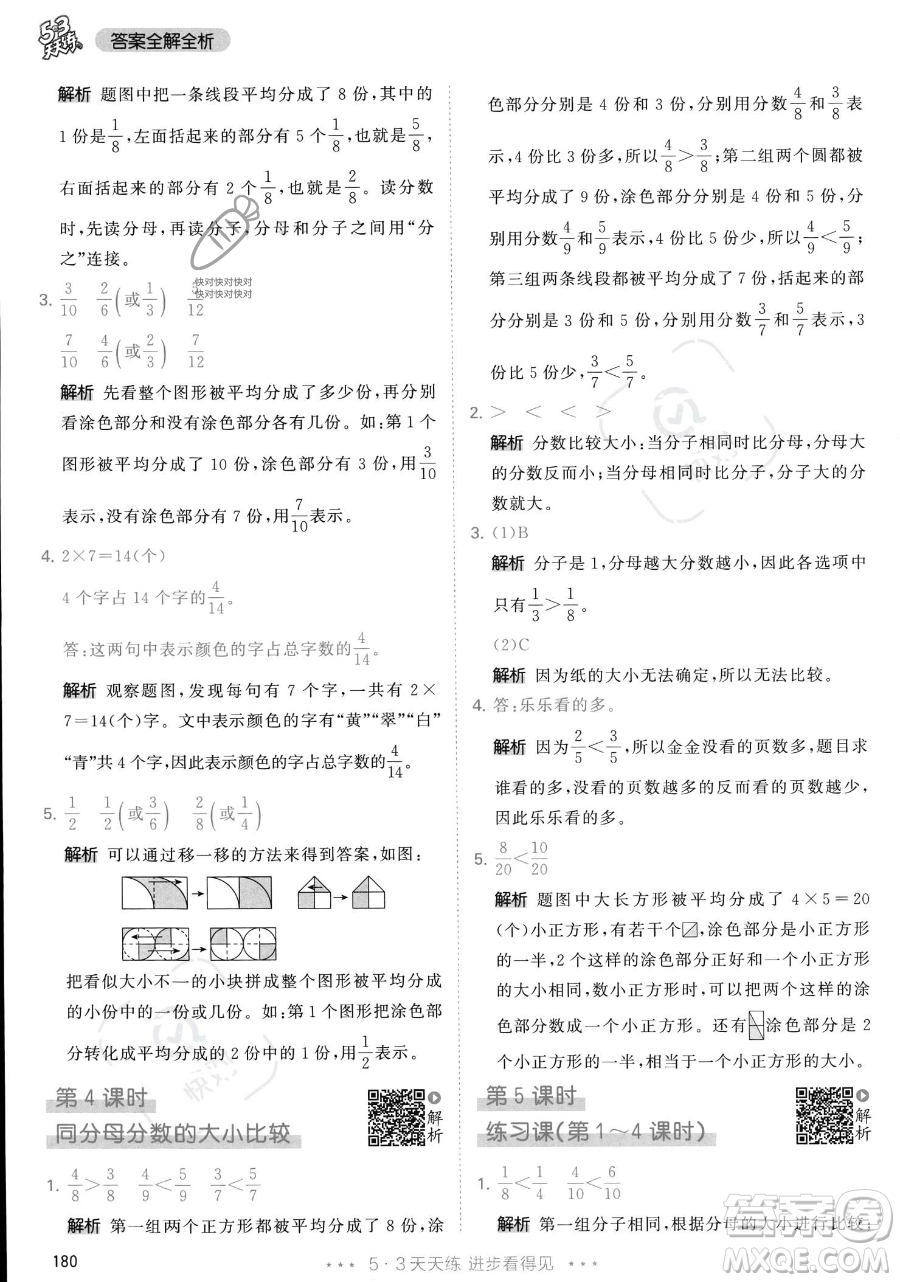 5·3
天天练
答案全解全析
解析 题图中把一条线段平均分成了 8 份，其中的
1 份是1/8，左面括起来的部分有 5 个1/8，也就是5/8，
右面括起来的部分有 2 个1/8，也就是2/8。读分数
时，先读分母，再读分子，分母和分子之间用“分
之”连接。
快对快对快对
快对快对快对
3. 3/10 2/6(或1/3) 3/12
7/10 4/6(或2/3) 7/12
解析 先看整个图形被平均分成了多少份，再分别
看涂色部分和没有涂色部分各有几份。如：第 1 个
图形被平均分成了 10 份，涂色部分有 3 份，用3/10
表示，没有涂色部分有 7 份，用7/10表示。
4. 2×7=14(个)
4 个字占 14 个字的4/14。
答：这两句中表示颜色的字占总字数的4/14。
解析 观察题图，发现每句有 7 个字，一共有 2×
7=14(个)字。文中表示颜色的字有“黄”“翠”“白”
“青”共 4 个字，因此表示颜色的字占总字数的4/14。
5. 1/2 1/2(或3/6) 2/8(或1/4)
解析 可以通过移一移的方法来得到答案，如图：
把看似大小不一的小块拼成整个图形被平均分成
的小份中的一份或几份。如：第 1 个图形把涂色部
分转化成平均分成 2 份中的 1 份，用1/2表示。
第 4 课时
同分母分数的大小比较
解析
1. 4/8>3/8 4/9<5/9 3/7<5/7
解析 第一组两个正方形都被平均分成了 8 份，涂
色部分分别是 4 份和 3 份，分别用分数4/8和3/8表
示，4 份比 3 份多，所以4/8>3/8；第二组两个圆都被
平均分成了 9 份，涂色部分分别是 4 份和 5 份，分
别用分数4/9和5/9表示，4 份比 5 份少，所以4/9<5/9；
第三组两条线段都被平均分成了 7 份，括起来的部
分分别是 3 份和 5 份，分别用分数3/7和5/7表示，3
份比 5 份少，所以3/7<5/7。
2. > < < >
解析 分数比较大小：当分子相同时比分母，分母大
的分数反而小；当分母相同时比分子，分子大的分
数就大。
3. (1)B
解析 分子是 1，分母越大分数越小，因此各选项中
只有1/3>1/8。
(2)C
解析 因为纸的大小无法确定，所以无法比较。
4. 答：乐乐看的多。
解析 因为2/5<3/5，所以金金没看的页数多，题目求
谁看的多，没看的页数越多的反而看的页数越少，
因此乐乐看的多。
5. 8/20<10/20
解析 题图中大长方形被平均分成了 4×5=20
(个)小正方形，有若干个，涂色部分是小正方形
的一半，2 个这样的涂色部分可以与 1 个小正方形
的大小相同，数小正方形时，可以把两个这样的涂
色部分数成一个小正方形。还有涂色部分是 2
个小正方形的一半，相当于 1 个小正方形的大小。
第 5 课时
练习课(第 1～4 课时)
解析
1. 1/8<1/4 6/10>4/10
解析 第一组分子相同，根据分母的大小进行比较；
180
5·3 天天练 进步看得见
答案圈
MXQE.COM